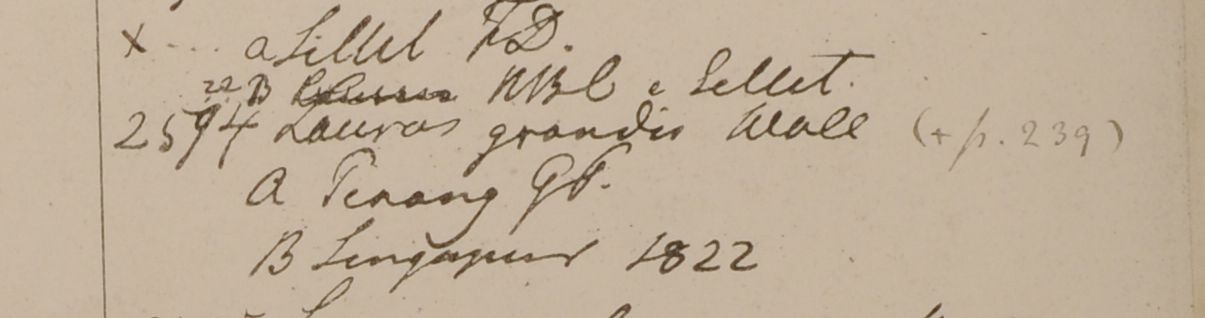 x .... a Sillet F.D.
?? B HBC e Sillet.
2594 Laurus grandis Wall (+ p. 239)
A Penang GP.
B Singapur 1822